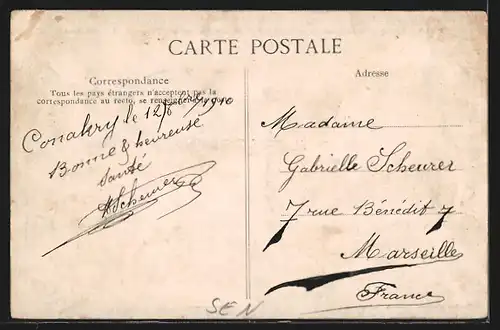 CARTE POSTALE
Correspondance
Tous les pays étrangers n'acceptent pas la
correspondance au recto, se renseigner à la
Adresse
Conakry le 12
1910
Bonne & heureuse
Santé
Scheurer
Madame
Gabrielle Scheurer
7 rue Bénédit 7
Marseille
France
SEN